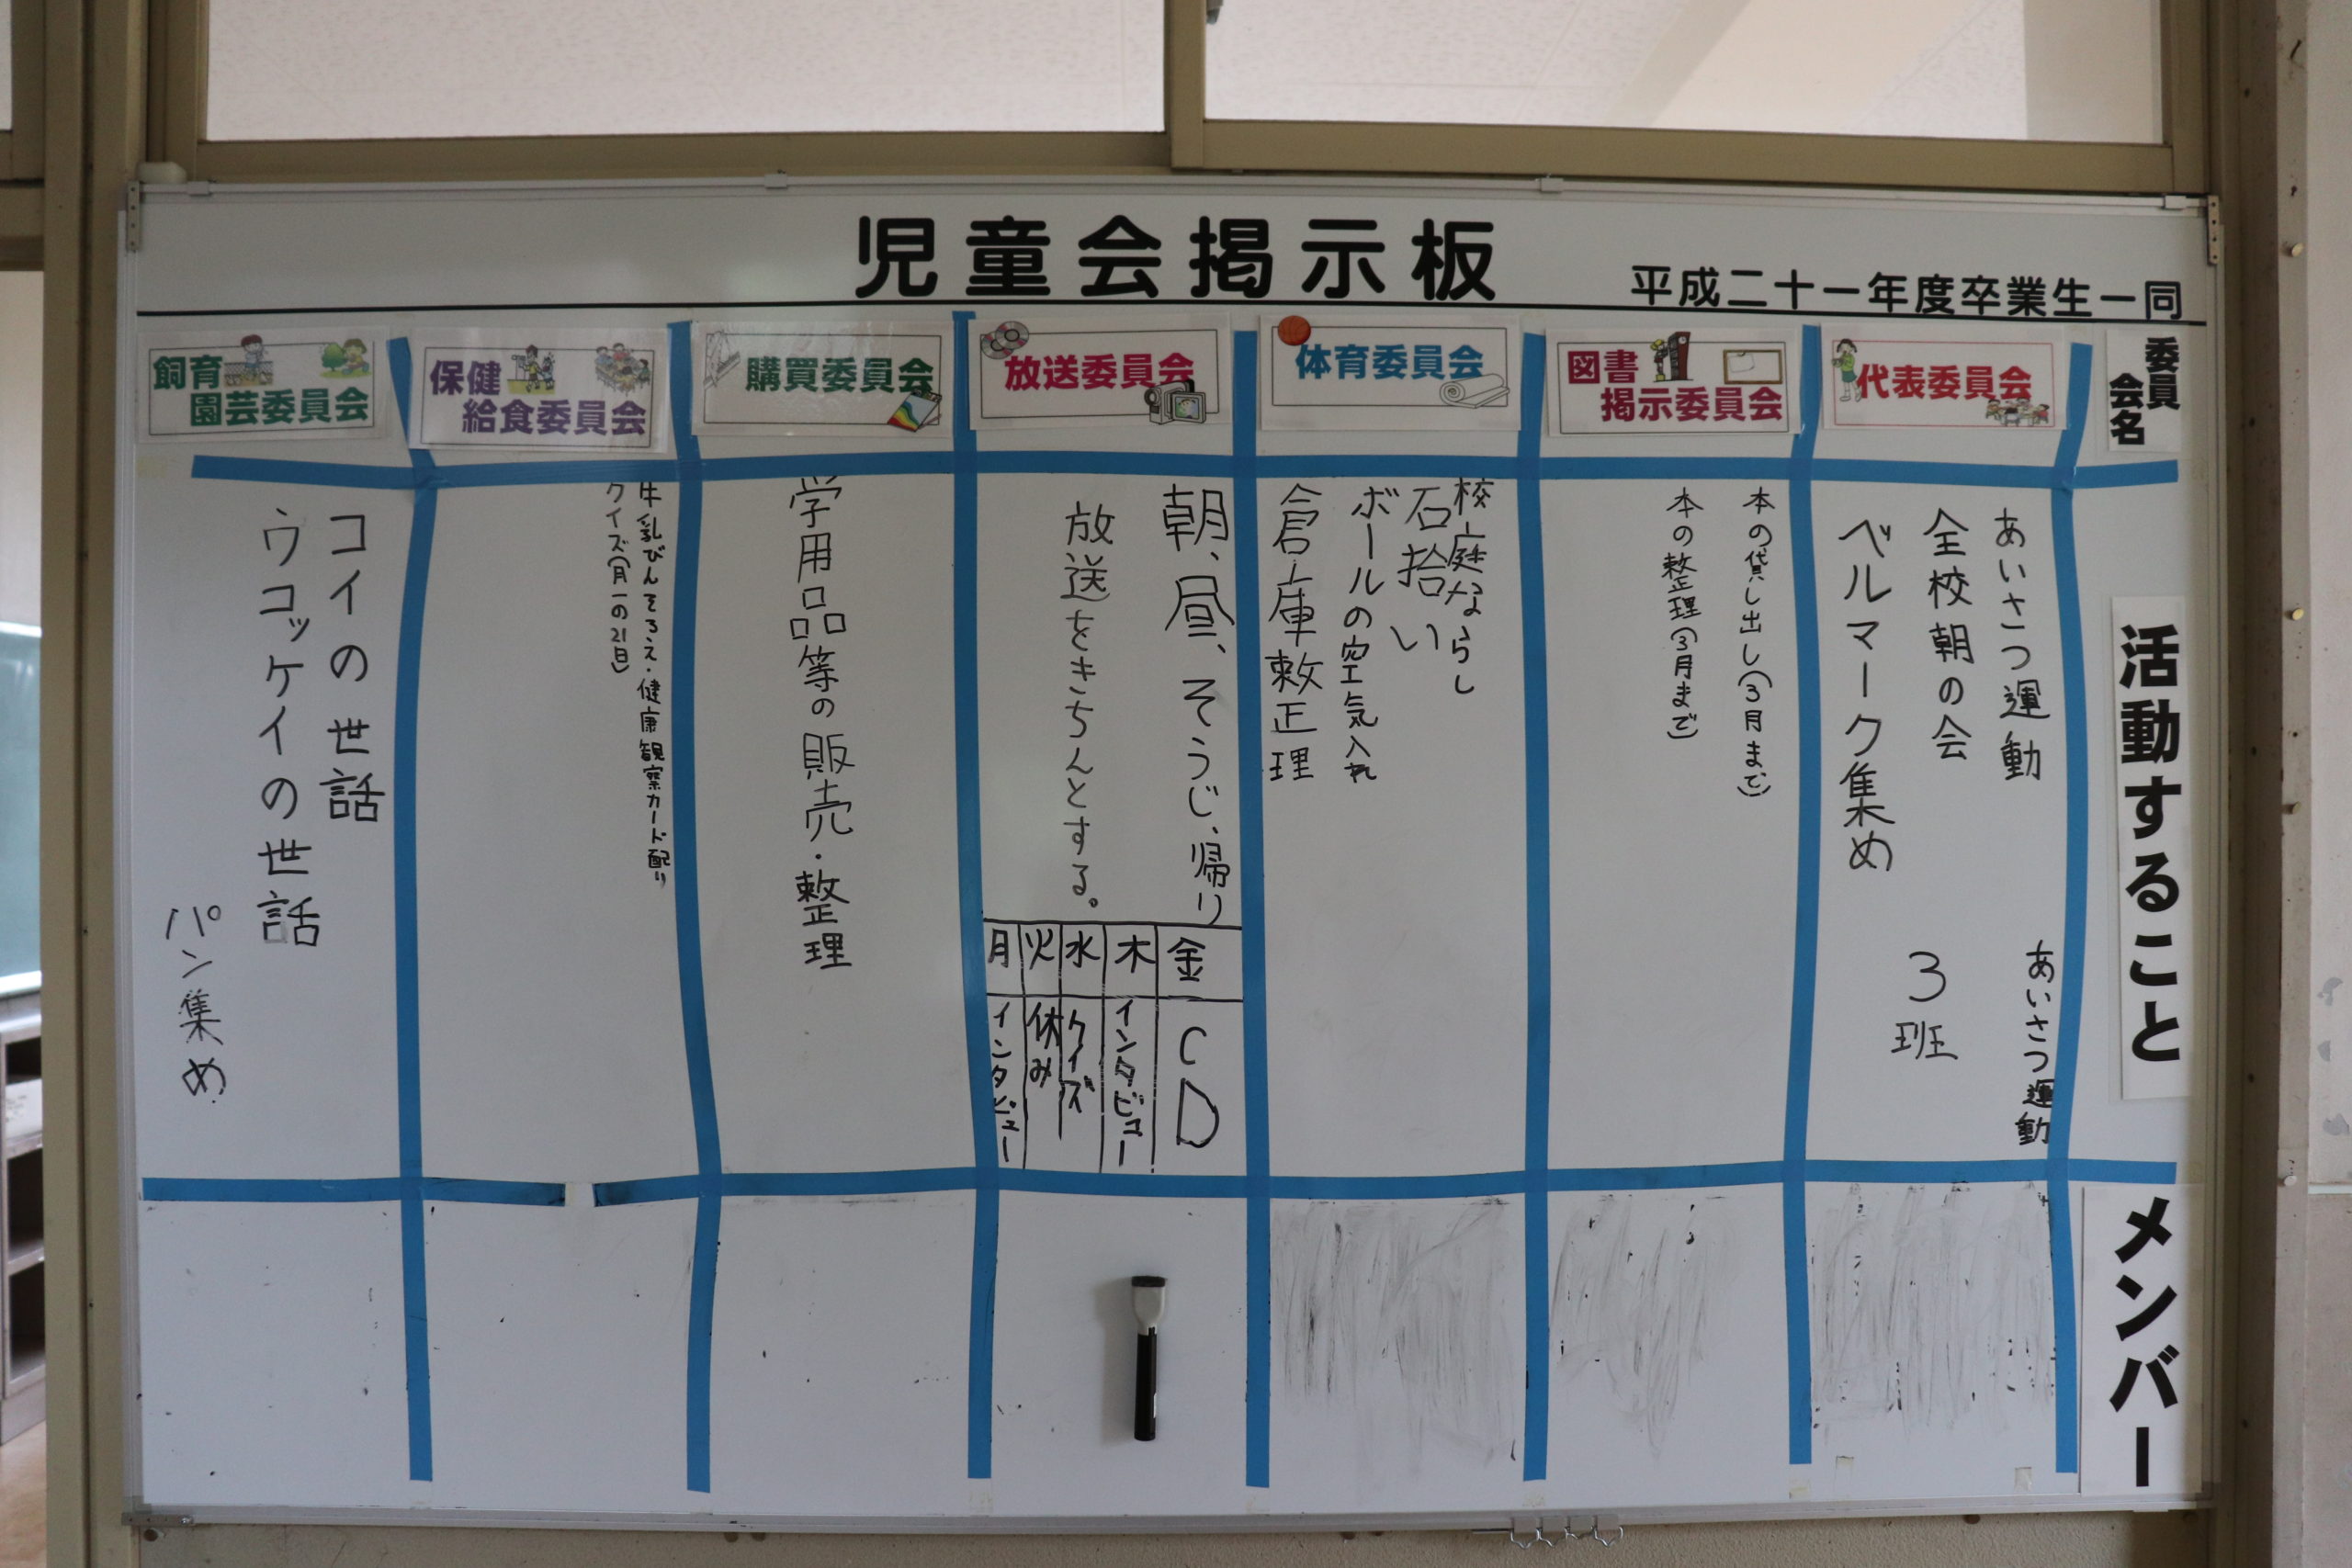 児童会掲示板
平成二十一年度卒業生一同
委員
会名
活動すること
メンバー
代表委員会
あいさつ運動
全校朝の会
ベルマーク集め
あいさつ運動
3班
図書
掲示委員会
本の貸し出し(3月まで)
本の整理(3月まで)
体育委員会
校庭ならし
石拾い
ボールの空気入れ
倉庫整理
放送委員会
朝、昼、そうじ、帰り
放送をきちんとする。
金
木
水
火
月
CD
インタビュー
クイズ
休み
インタビュー
購買委員会
学用品等の販売・整理
保健
給食委員会
牛乳びんそろえ・健康観察カード配り
クイズ(月一の21日)
飼育
園芸委員会
コイの世話
ウコッケイの世話
パン集め